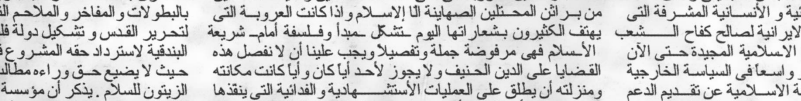 ية و الأنسانية المشرفة التى
لايرانية لصالح كفاح الشعب
الاسلامية المجيدة حتى الآن
و واسعاً فى السياسة الخارجية
ة الاسلامية عن تقديم الدعم
من براثن المحتلين الصهاينة الا الاسلام و اذا كانت العروبة التى
يهتف الكثيرون بشعاراتها اليوم تتشكل مبدأ و فلسفة أمام شريعة
الأسلام فهى مرفوضة جملة وتفصيلاً ويجب علينا أن لا نفصل هذه
القضايا على الدين الحنيف ولا يجوز لأحد أياً كان و أيا كانت مكانته
ومنزلته أن يطلق على العمليات الأستشهادية و الفدانية التى ينقذها
بالبطولات و المفاخر و الملاحم
لتحرير القدس و تشكيل دولة
البندقية لاسترداد حقه المشروع
حيث لا يضيع حق وراءه
الزيتون للسلام . يذكر أن مؤسسة